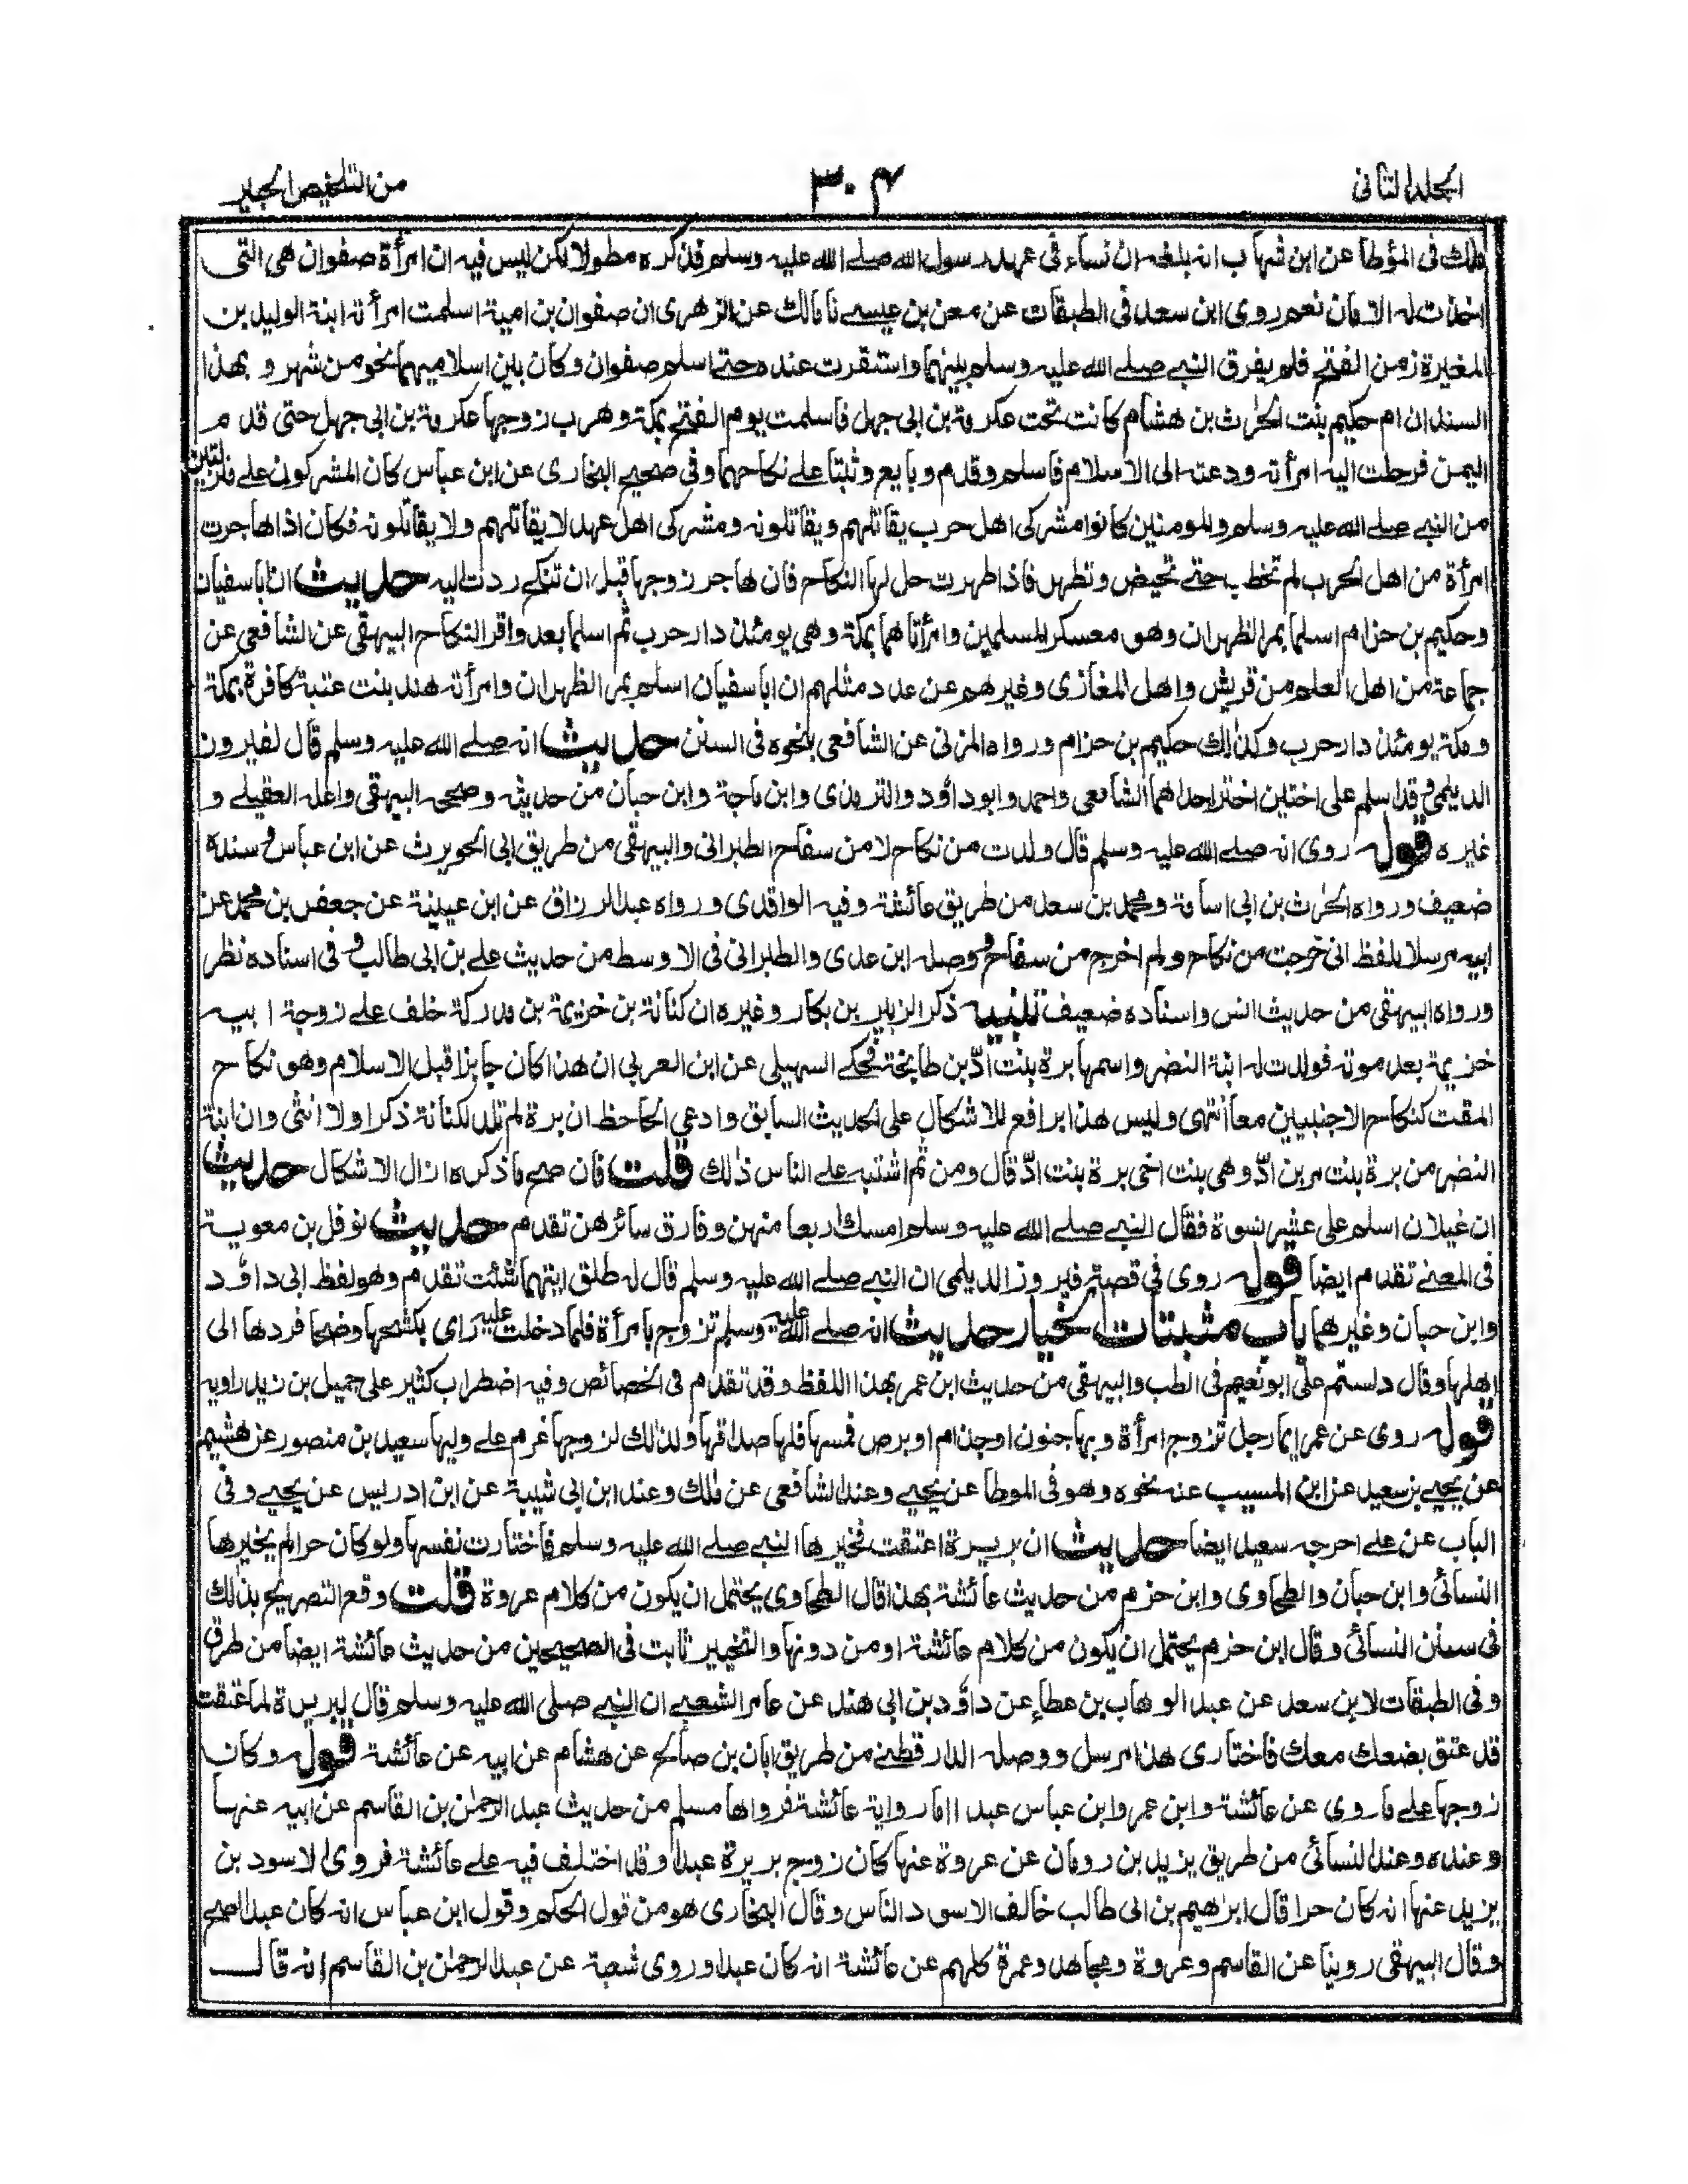 المجلد الثانى
٣٠٤
من التلخيص الحبير
مالك فى المؤطا عن ابن شهاب انه بلغه ان نساء فى عهد رسول الله صلے الله عليه وسلم فذكره مطولا لكن ليس فيه ان امرأة صفوان هى التى
اخذت له الامان نعم روى ابن سعد فى الطبقات عن معن بن عيسے نا مالك عن الزهرى ان صفوان بن امية اسلمت امرأته ابنة الوليد بن
المغيرة زمن الفتح فلم يفرق النبے صلے الله عليه وسلم بينهما واستقرت عنده حتے اسلم صفوان وكان بين اسلاميهما نحو من شهر و بهذا
السند ان ام حكيم بنت الحرث بن هشام كانت تحت عكرمة بن ابى جهل فاسلمت يوم الفتح بمكة وهرب زوجها عكرمة بن ابى جهل حتى قدم
اليمن فرحلت اليه امرأته ودعته الى الاسلام فاسلم وقدم وبايع وثبتا علے نكاحهما وفى صحيح البخارى عن ابن عباس كان المشركون علے منزلتين
من النبے صلے الله عليه وسلم والمومنين كانوا مشركى اهل حرب يقاتلهم ويقاتلونه ومشركى اهل عهد لا يقاتلهم ولا يقاتلونه فكان اذا هاجرت
امرأة من اهل الحرب لم تخطب حتے تحيض وتطهر فاذا طهرت حل لها النكاح فان هاجر زوجها قبل ان تنكح ردت اليه حديث ان ابا سفيان
وحكيم بن حزام اسلما بمر الظهران وهو معسكر المسلمين وامرأتاهما بمكة وهى يومئذ دار حرب ثم اسلما بعد واقر النكاح البيهقى عن الشافعى عن
جماعة من اهل العلم من قريش واهل المغازى وغيرهم عن عدد مثلهم ان ابا سفيان اسلم بمر الظهران وامرأته هند بنت عتبة كافرة بمكة
ومكة يومئذ دار حرب وكذلك حكيم بن حزام ورواه المزنى عن الشافعى بنحوه فى السنن حديث انه صلے الله عليه وسلم قال لفيروز
الديلمى وقد اسلم على اختين اختر احداهما الشافعى واحمد وابو داؤد والترمذى وابن ماجة وابن حبان من حديثه وصححه البيهقى واعله العقيلے و
غيره قوله روى انه صلے الله عليه وسلم قال ولدت من نكاح لا من سفاح الطبرانى والبيهقى من طريق ابى الحويرث عن ابن عباس وسنده
ضعيف ورواه الحرث بن ابى اسامة ومحمد بن سعد من طريق عائشة وفيه الواقدى ورواه عبد الرزاق عن ابن عيينة عن جعفر بن محمد عن
ابيه مرسلا بلفظ انى خرجت من نكاح ولم اخرج من سفاح ووصله ابن عدى والطبرانى فى الاوسط من حديث علے بن ابى طالب وفى اسناده نظر
ورواه البيهقى من حديث انس واسناده ضعيف تنبيه ذكر الزبير بن بكار وغيره ان كنانة بن خزيمة بن مدركة خلف علے زوجة ابيه
خزيمة بعد موته فولدت له ابنة النضر واسمها برة بنت ادّ بن طابخة فحكے السهيلى عن ابن العربى ان هذا كان جايزا قبل الاسلام وهو نكاح
المقت كنكاح الاجنبيين معا انتهى وليس هذا برافع للاشكال على الحديث السابق وادعى الحافظ ان برة لم تلد لكنانة ذكرا ولا انثى وان ابنة
النضر من برة بنت مر بن ادّ وهى بنت اخى برة بنت ادّ قال ومن ثم اشتبه علے الناس ذلك قلت فان صح ما ذكره ازال الاشكال حديث
ان غيلان اسلم على عشر نسوة فقال النبے صلے الله عليه وسلم امسك اربعا منهن وفارق سائرهن تقدم حديث نوفل بن معوية
فى المعنے تقدم ايضا قوله روى فى قصة فيروز الديلمى ان النبے صلے الله عليه وسلم قال له طلق ايتهما شئت تقدم وهو لفظ ابى داؤد
وابن حبان وغيرهما باب مثبتات الخيار حديث انه صلے الله عليه وسلم تزوج بامرأة فلما دخلت عليه راى بكشحها وضحا فردها الى
اهلها وقال دلستم علىّ ابو نعيم فى الطب والبيهقى من حديث ابن عمر بهذا اللفظ وقد تقدم فى الخصائص وفيه اضطراب كثير على جميل بن زيد راويه
قوله روى عن عمر ايما رجل تزوج امرأة وبها جنون او جذام او برص فمسها فلها صداقها وذلك لزوجها غرم علے وليها سعيد بن منصور عن هشيم
عن يحيے بن سعيد عن ابن المسيب عنه نحوه وهو فى الموطا عن يحيے وعند الشافعى عن مالك وعند ابن ابى شيبة عن ابن ادريس عن يحيے وفى
الباب عن علے اخرجه سعيد ايضا حديث ان بريرة اعتقت فخيرها النبے صلے الله عليه وسلم فاختارت نفسها ولو كان حرا لم يخيرها
النسائى وابن حبان والطحاوى وابن حزم من حديث عائشة بهذا قال الطحاوى يحتمل ان يكون من كلام عروة قلت وقع التصريح بذلك
فى سنن النسائى وقال ابن حزم يحتمل ان يكون من كلام عائشة او من دونها والتخيير ثابت فى الصحيحين من حديث عائشة ايضا من طرق
وفى الطبقات لابن سعد عن عبد الوهاب بن عطاء عن داؤد بن ابى هند عن عامر الشعبے ان النبے صلى الله عليه وسلم قال لبريرة لما عتقت
قد عتق بضعك معك فاختارى هذا مرسل ووصله الدارقطنے من طريق ابان بن صالح عن هشام عن ابيه عن عائشة قوله وكان
زوجها علے ما روى عن عائشة وابن عمر وابن عباس عبدا اما رواية عائشة فرواها مسلم من حديث عبد الرحمن بن القاسم عن ابيه عنها
وعنده وعند النسائى من طريق يزيد بن رومان عن عروة عنها كان زوج بريرة عبدا وقد اختلف فيه علے عائشة فروى الاسود بن
يزيد عنها انه كان حرا قال ابرهيم بن ابى طالب خالف الاسود الناس وقال البخارى هو من قول الحكم وقول ابن عباس انه كان عبدا اصح
وقال البيهقى روينا عن القاسم وعروة ومجاهد وعمرة كلهم عن عائشة انه كان عبدا وروى شعبة عن عبد الرحمن بن القاسم انه قال